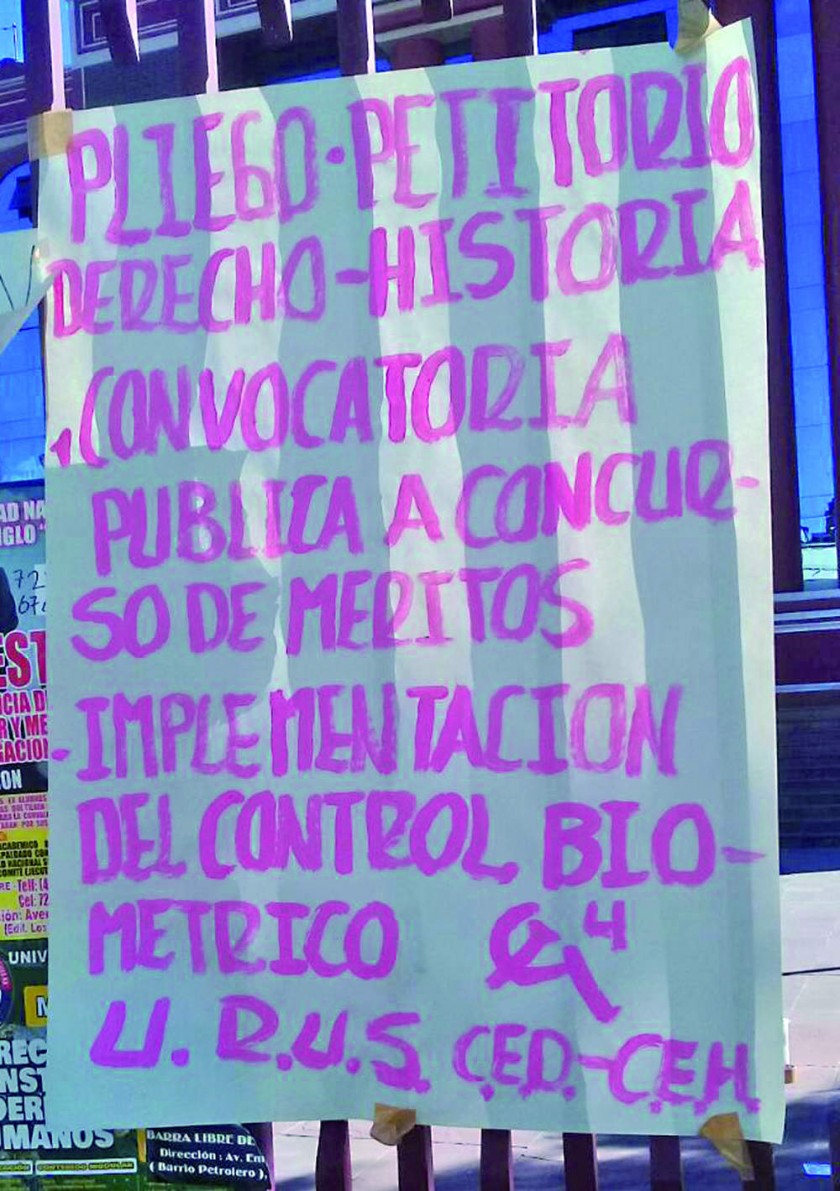 PLIEGO·PETITORIO
DERECHO-HISTORIA
1 CONVOCATORIA
PUBLICA A CONCUR-
SO DE MERITOS
-IMPLEMENTACION
DEL CONTROL BIO-
METRICO 4
U.R.U.S. C.E.D.-C.E.H.
AD NA
IGLO
72
67
EST
CIA D
R Y ME
GACION
ON
Telf: (4
Cel: 72
ión: Ave
(Edif. Los
UNIV
M
REC
NST
DER
UMANOS
BARRA LIBRE DE
Dirección : Av. Em
( Barrio Petrolero ),